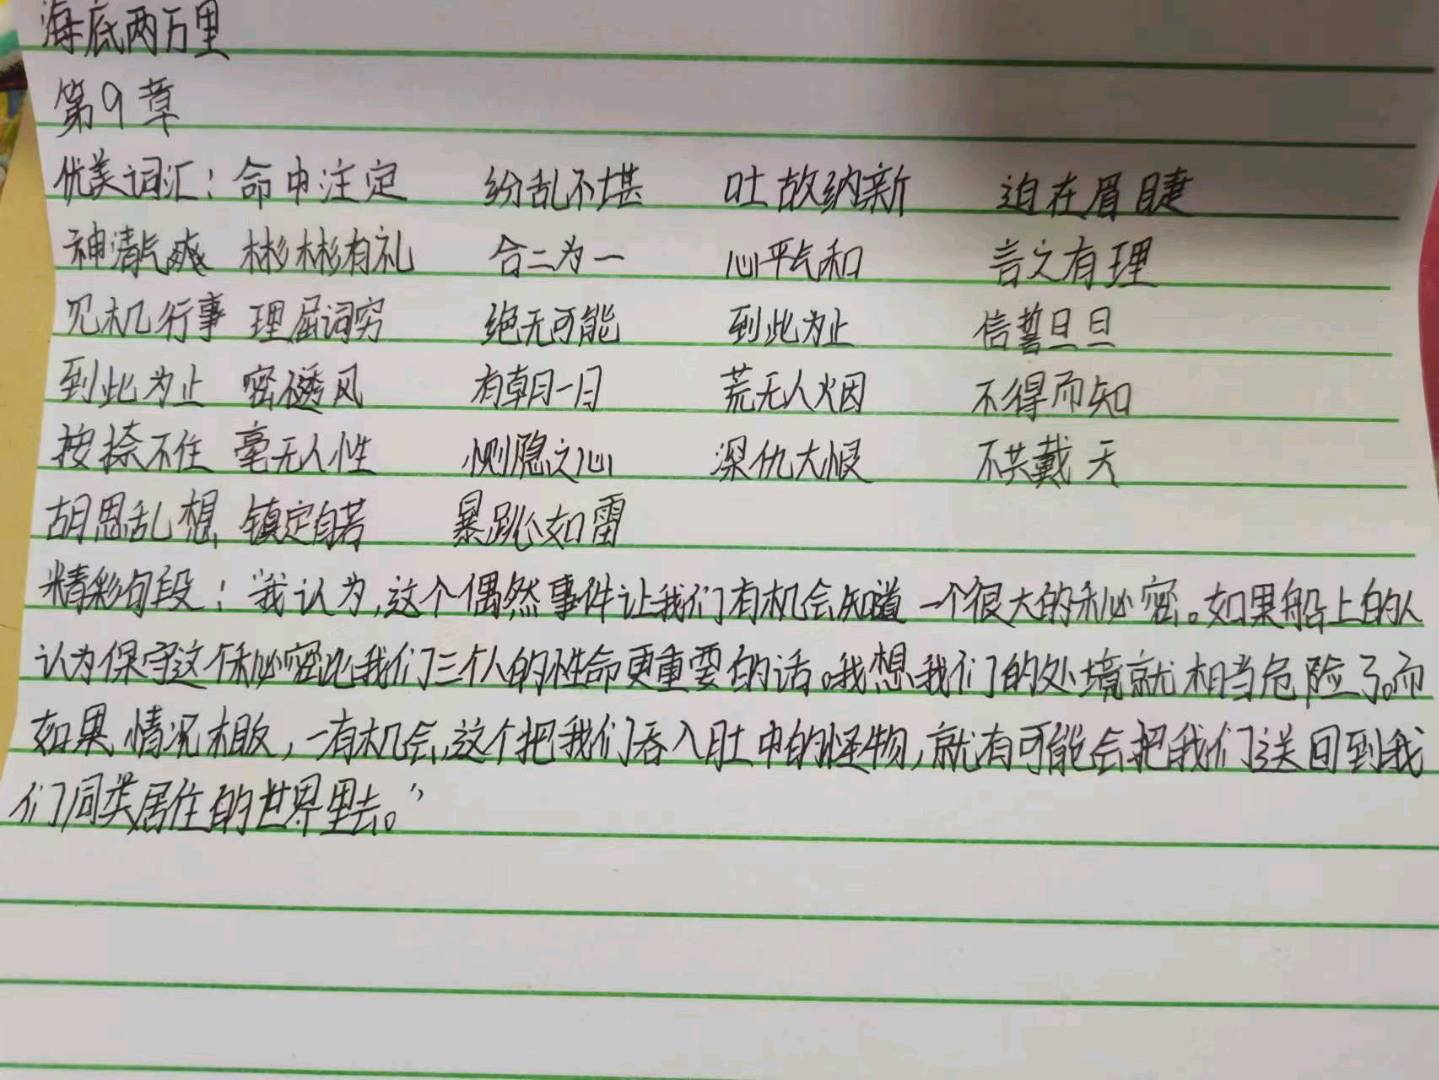 海底两万里
第9章
优美词汇：命中注定 纷乱不堪 吐故纳新 迫在眉睫
神清气爽 彬彬有礼 合二为一 心平气和 言之有理
见机行事 理屈词穷 绝无可能 到此为止 信誓旦旦
到此为止 密不透风 有朝一日 荒无人烟 不得而知
按捺不住 毫无人性 恻隐之心 深仇大恨 不共戴天
胡思乱想 镇定自若 暴跳如雷
精彩句段：“我认为，这个偶然事件让我们有机会知道一个很大的秘密。如果船上的人
认为保守这个秘密比我们三个人的性命更重要的话。我想，我们的处境就相当危险了。而
如果情况相反，一有机会，这个把我们吞入肚中的怪物，就有可能会把我们送回到我
们同类居住的世界里去。”